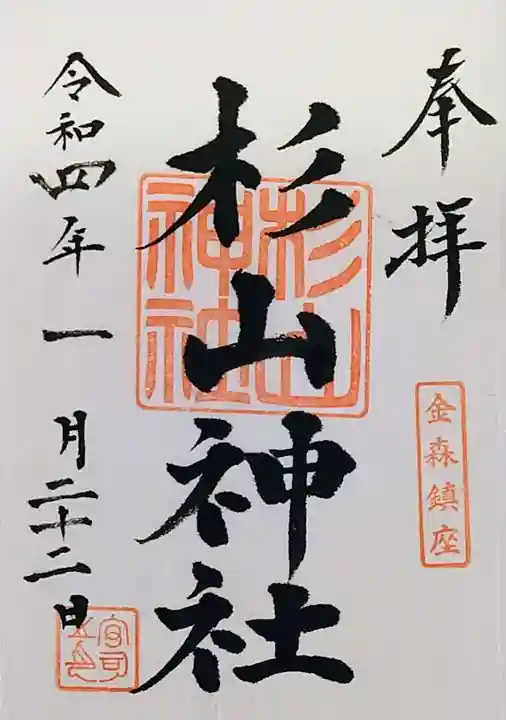 奉拝
金森鎮座
杉山神社
杉山神社
令和四年一月二十二日
宮司